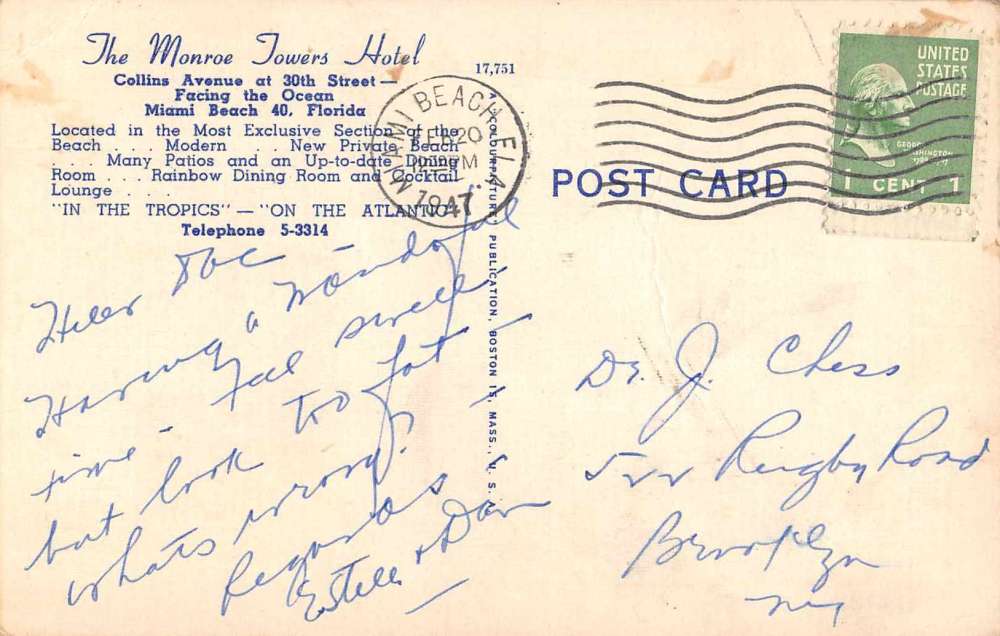 The Monroe Towers Hotel
Collins Avenue at 30th Street —
Facing the Ocean
Miami Beach 40, Florida
Located in the Most Exclusive Section of the
Beach . . . Modern . . New Private Beach
. . . Many Patios and an Up-to-date Dining
Room . . . Rainbow Dining Room and Cocktail
Lounge . . .
"IN THE TROPICS" — "ON THE ATLANTIC"
Telephone 5-3314
17,751
MIAMI BEACH, FLA.
FEB 20
PM
1947
UNITED
STATES
POSTAGE
GEORGE
WASHINGTON
1 CENT 1
POST CARD
COLOURPICTURE PUBLICATION, BOSTON 15, MASS., U. S. A.
Hello Doc
Having a wonderful
time - Feel swell
but look too fat
whats wrong?
Regards
Estelle + Dave
Dr. J. Chess
522 Rugby Road
Brooklyn
NY